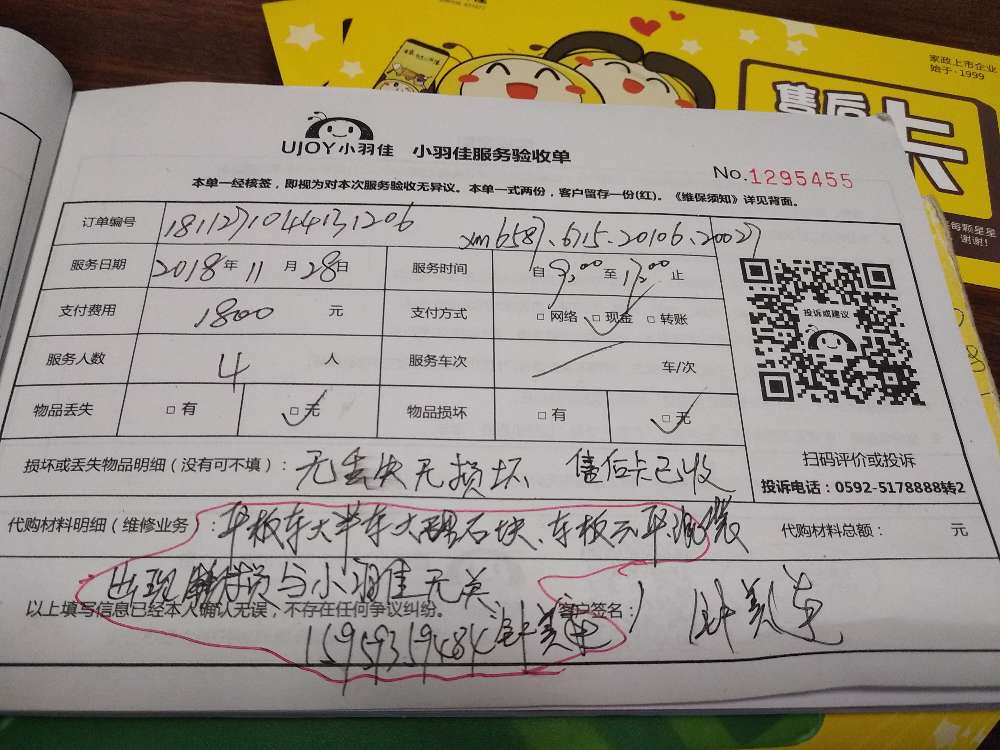 家政上市企业
始于·1999
售后卡
每颗星星
谢谢!
UJOY小羽佳 小羽佳服务验收单
No.1295455
本单一经核签，即视为对本次服务验收无异议。本单一式两份，客户留存一份(红)。《维保须知》详见背面。
订单编号 1811271044131206 xm6587、6715、20106、20027
服务日期 2018年11月28日 服务时间 自9:00至17:00止
支付费用 1800 元 支付方式 □网络 □现金 □转账
服务人数 4 人 服务车次 车/次
物品丢失 □有 □无 物品损坏 □有 □无
投诉或建议
损坏或丢失物品明细（没有可不填）： 无丢失无损坏 售后卡已收
扫码评价或投诉
投诉电话：0592-5178888转2
代购材料明细（维修业务）： 平板车大半车大理石块、车板 代购材料总额： 元
出现 与小羽佳无关
以上填写信息已经本人确认无误，不存在任何争议纠纷。 客户签名：
15959319484